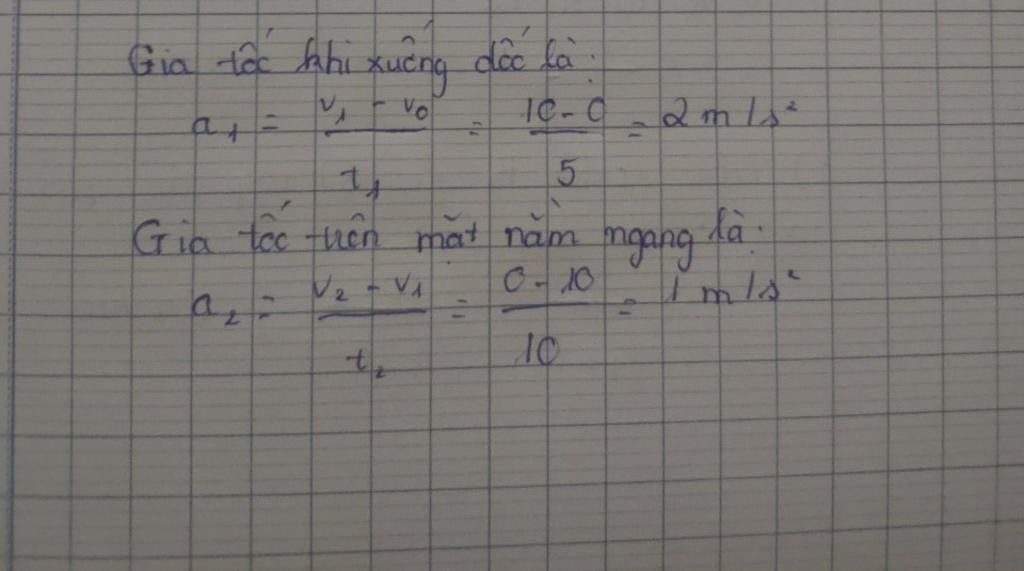 Gia tốc khi xuống dốc là:
a₁ = (v₁ - v₀)/t₁ = (10 - 0)/5 = 2 m/s²
Gia tốc trên mặt nằm ngang là:
a₂ = (v₂ - v₁)/t₂ = (0 - 10)/10 = 1 m/s²